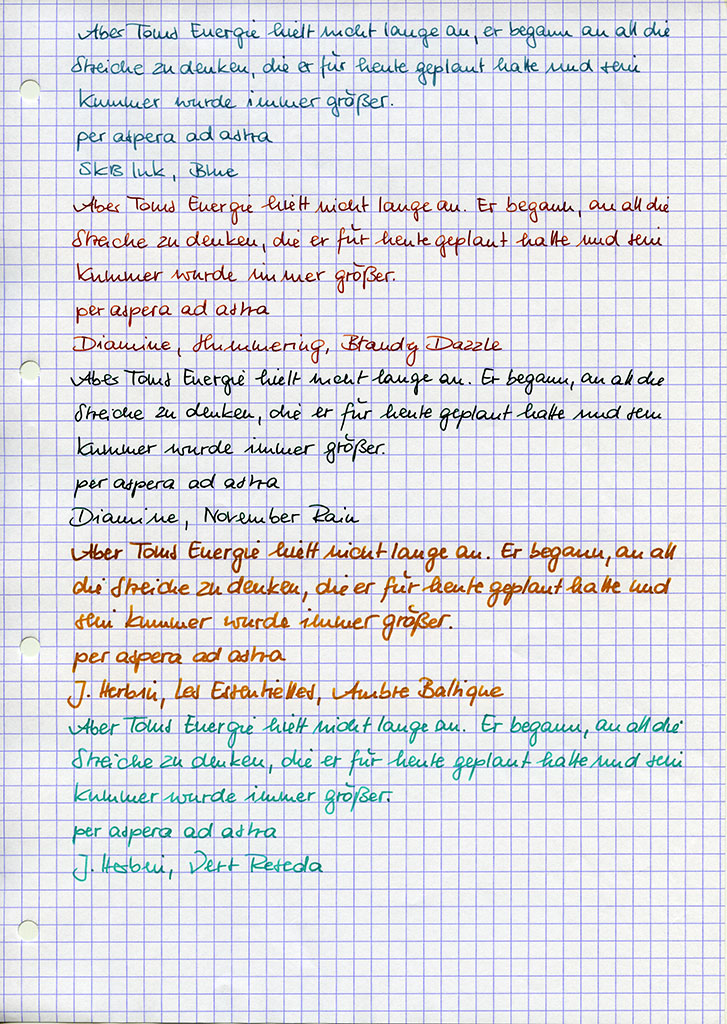 Aber Toms Energie hielt nicht lange an, er begann an all die
Streiche zu denken, die er für heute geplant hatte und sein
Kummer wurde immer größer.
per aspera ad astra
SKB Ink, Blue
Aber Toms Energie hielt nicht lange an. Er begann, an all die
Streiche zu denken, die er für heute geplant hatte und sein
Kummer wurde immer größer.
per aspera ad astra
Diamine, Shimmering, Brandy Dazzle
Aber Toms Energie hielt nicht lange an. Er begann, an all die
Streiche zu denken, die er für heute geplant hatte und sein
Kummer wurde immer größer.
per aspera ad astra
Diamine, November Rain
Aber Toms Energie hielt nicht lange an. Er begann, an all
die Streiche zu denken, die er für heute geplant hatte und
sein Kummer wurde immer größer.
per aspera ad astra
J. Herbin, Les Essentielles, Ambre Baltique
Aber Toms Energie hielt nicht lange an. Er begann, an all die
Streiche zu denken, die er für heute geplant hatte und sein
Kummer wurde immer größer.
per aspera ad astra
J. Herbin, Vert Reseda